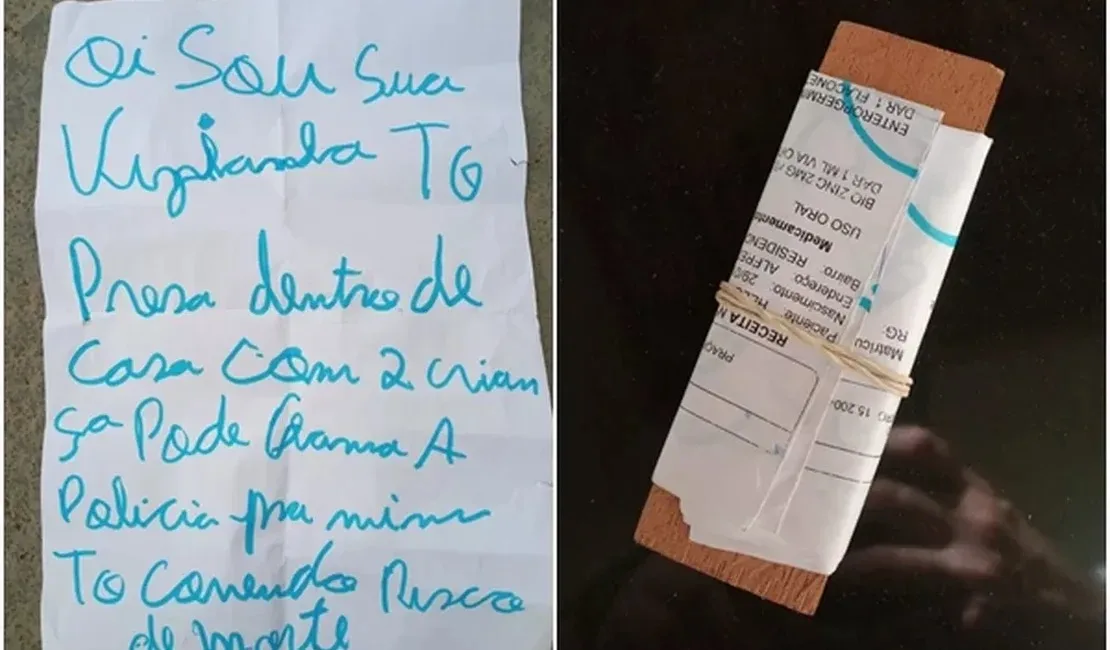 Oi Sou Sua
TO
Presa dentro de
Casa Com 2 crian
ça Pode Chama A
Policia pra mim
To Correndo Risco
de morte
PRAÇ
15.200
RECEITA M
Matrícu
Paciente:
RG:
Nascimento: 29/0
Endereço: ALFRE
Bairro: RESIDENC
Medicamento
USO ORAL
BIO ZINC 2MG/
DAR 1 ML VIA O
ENTEROPGERMI
DAR 1 FLACONE